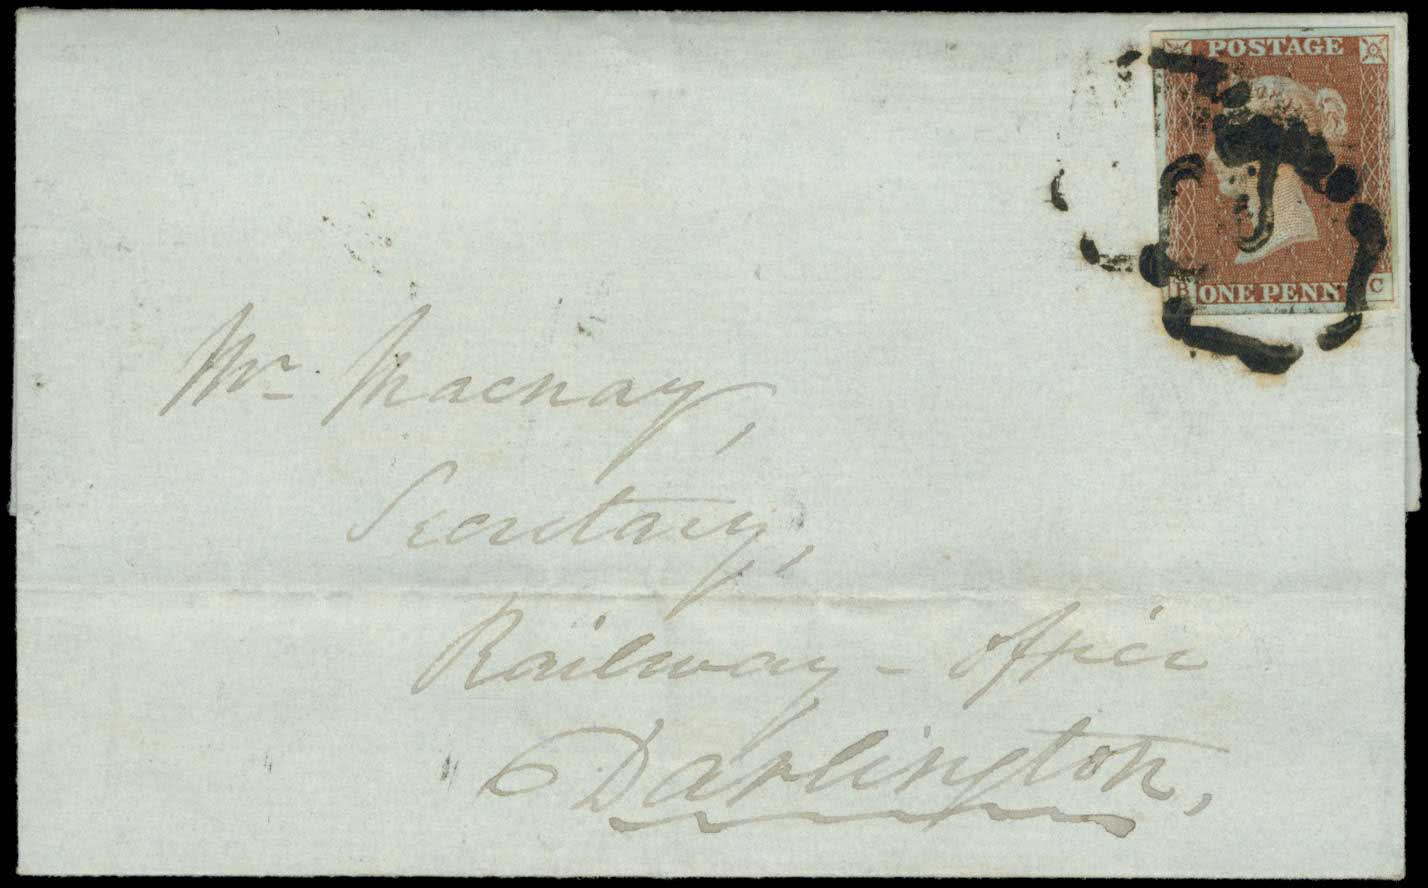 POSTAGE
ONE PENN
C
Mr Macnay,
Secretary,
Railway - Office
Darlington,